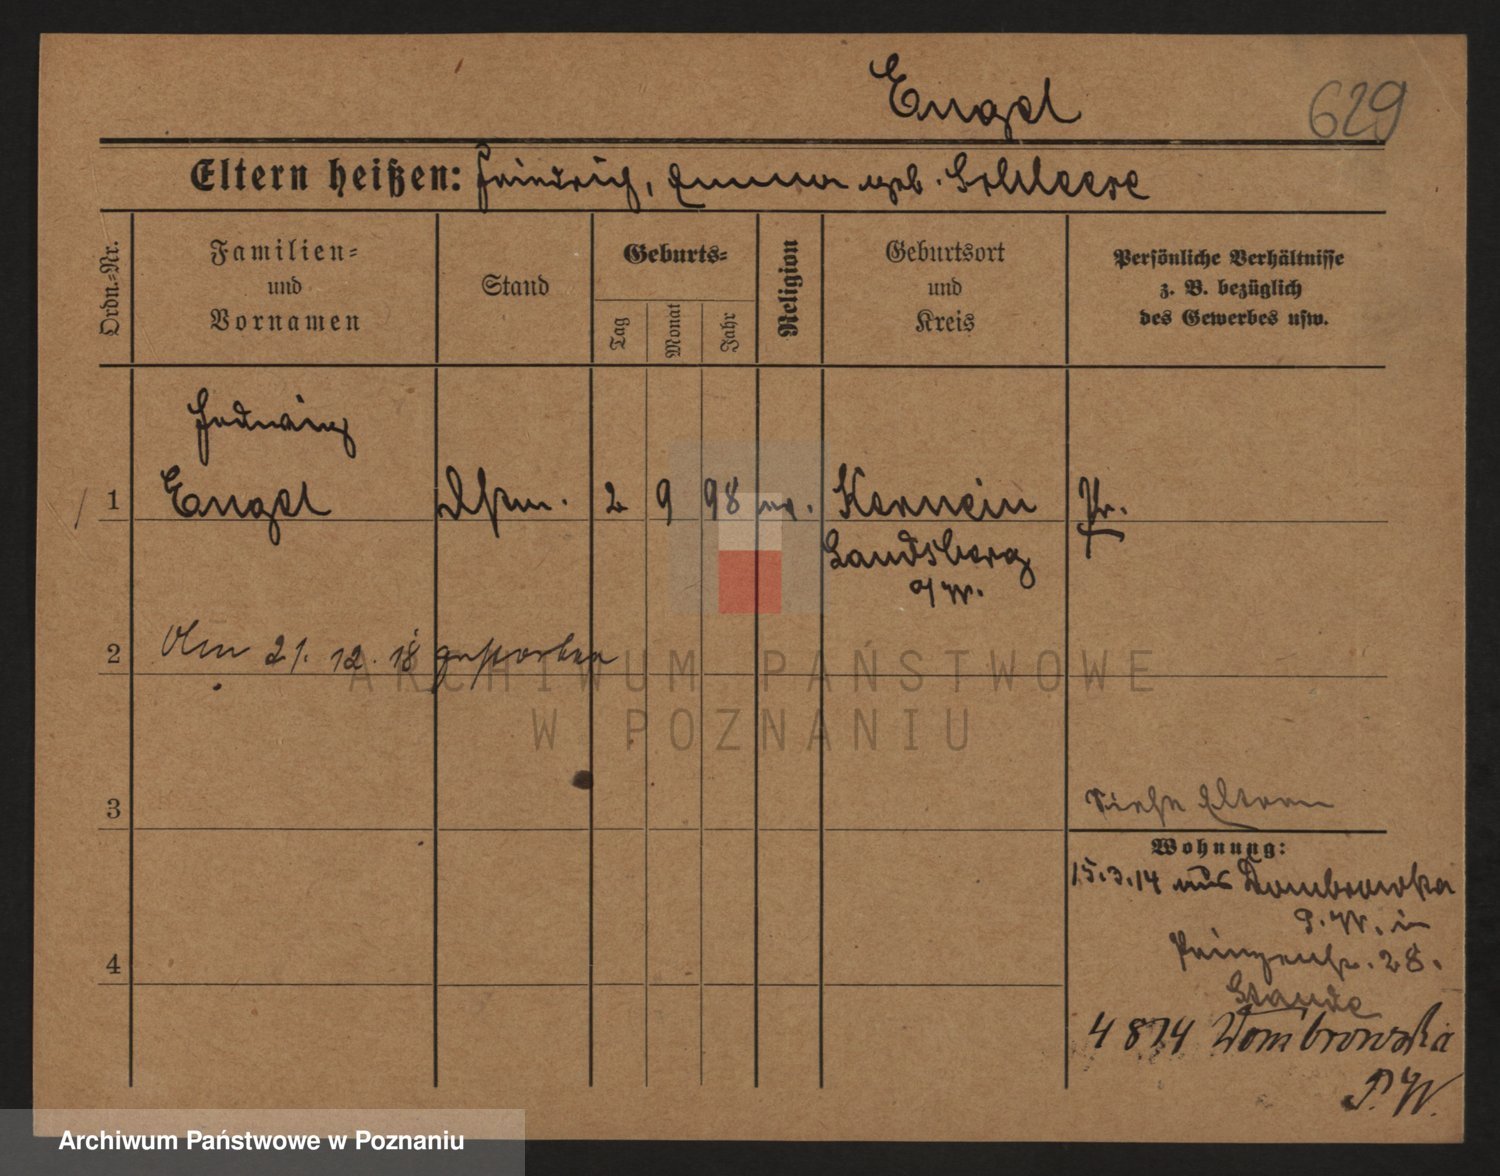 Engel
629
Eltern heißen: Friedrich, Emma geb.
Ordn.-Nr.
Familien-
und
Vornamen
Stand
Geburts-
Tag
Monat
Jahr
Religion
Geburtsort
und
Kreis
Persönliche Verhältnisse
z. B. bezüglich
des Gewerbes usw.
Hedwig
1 Engel Dstm. 2 9 98 ev. Kernein Pr.
Landsberg
a/W.
2 Am 21. 12. 18 gestorben
ARCHIWUM PAŃSTWOWE
W POZNANIU
3 Siehe Eltern
Wohnung:
15.3.14 aus Dombrowka
P. W. in
Prinzenstr. 28.
4
Staude
4 8 14 Dombrowska
P. W.
Archiwum Państwowe w Poznaniu